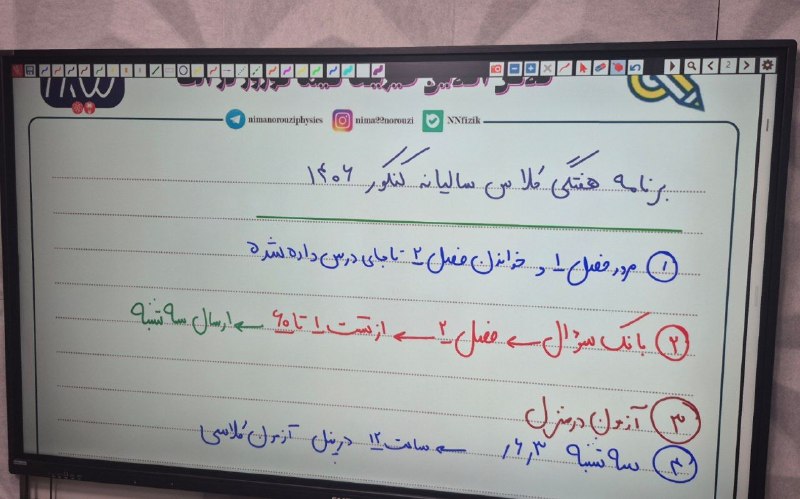 nimanorouziphysics nima22norouzi NNfizik
برنامه هفتگی کلاس سالیانه کنکور ۱۴۰۶
۱ مرور فصل ۱ و خواندن فصل ۲ تا جای درس داده شده
۲ بانک سؤال ← فصل ۲ ← از تست ۱ تا ۶۰ ← ارسال سه شنبه
۳ آزمون در منزل
۴ سه شنبه ۶٫۳ ← ساعت ۱۲ در پنل آزمون کلاسی